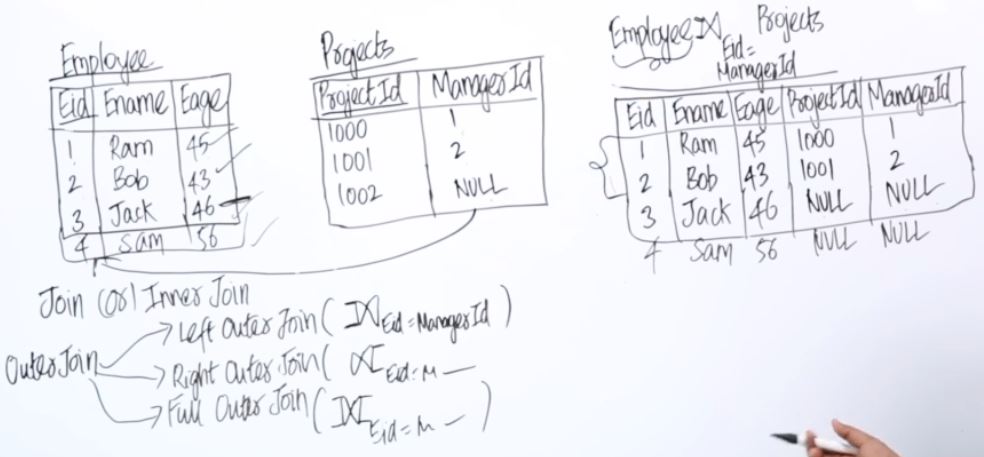 Employee
Eid Ename Eage
1 Ram 45
2 Bob 43
3 Jack 46
4 Sam 56
Projects
ProjectId ManagerId
1000 1
1001 2
1002 NULL
Employee ⟕ Projects
Eid=
ManagerId
Eid Ename Eage ProjectId ManagerId
1 Ram 45 1000 1
2 Bob 43 1001 2
3 Jack 46 NULL NULL
4 Sam 56 NULL NULL
Join (or) Inner Join
Outer Join
Left Outer Join ( ⟕ Eid = ManagerId )
Right Outer Join ( ⟖ Eid = M —
Full Outer Join ( ⟗ Eid = M — )